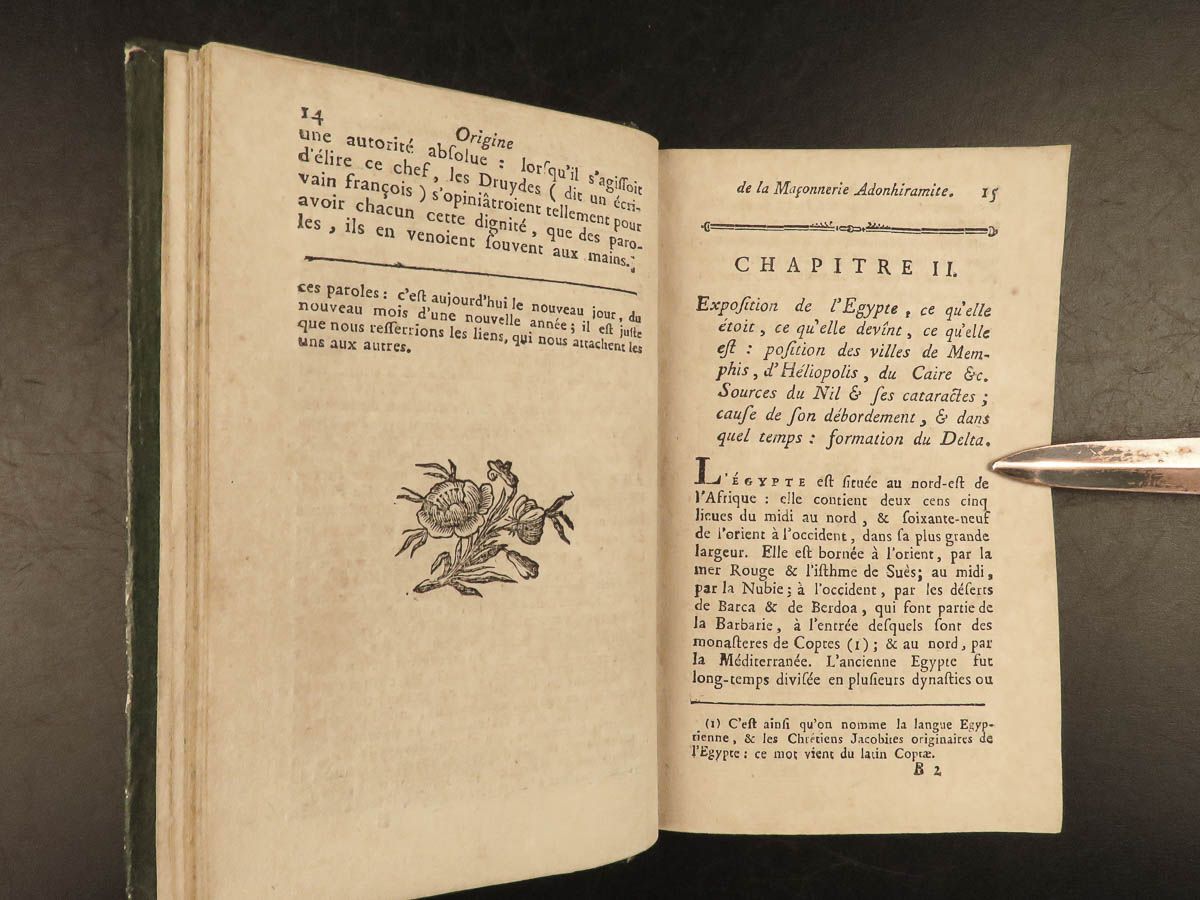 14
Origine
une autorité abſolue : lorſqu'il s'agiſſoit
d'élire ce chef, les Druydes ( dit un écri-
vain françois ) s'opiniâtroient tellement pour
avoir chacun cette dignité, que des paro-
les, ils en venoient ſouvent aux mains.
ces paroles : c'eſt aujourd'hui le nouveau jour, du
nouveau mois d'une nouvelle année ; il eſt juſte
que nous reſſerrions les liens, qui nous attachent les
uns aux autres.
de la Maçonnerie Adonhiramite. 15
CHAPITRE II.
Expoſition de l'Egypte, ce qu'elle
étoit, ce qu'elle devînt, ce qu'elle
eſt : poſition des villes de Mem-
phis, d'Héliopolis, du Caire &c.
Sources du Nil & ſes cataractes ;
cauſe de ſon débordement, & dans
quel temps : formation du Delta.
L'ÉGYPTE eſt ſituée au nord-eſt de
l'Afrique : elle contient deux cens cinq
lieues du midi au nord, & ſoixante-neuf
de l'orient à l'occident, dans ſa plus grande
largeur. Elle eſt bornée à l'orient, par la
mer Rouge & l'iſthme de Suès ; au midi,
par la Nubie ; à l'occident, par les déſerts
de Barca & de Berdoa, qui font partie de
la Barbarie, à l'entrée deſquels ſont des
monaſteres de Coptes (1) ; & au nord, par
la Méditerranée. L'ancienne Egypte fut
long-temps diviſée en pluſieurs dynaſties ou
(1) C'eſt ainſi qu'on nomme la langue Egyp-
tienne, & les Chrétiens Jacobites originaires de
l'Egypte : ce mot vient du latin Coptæ.
B 2